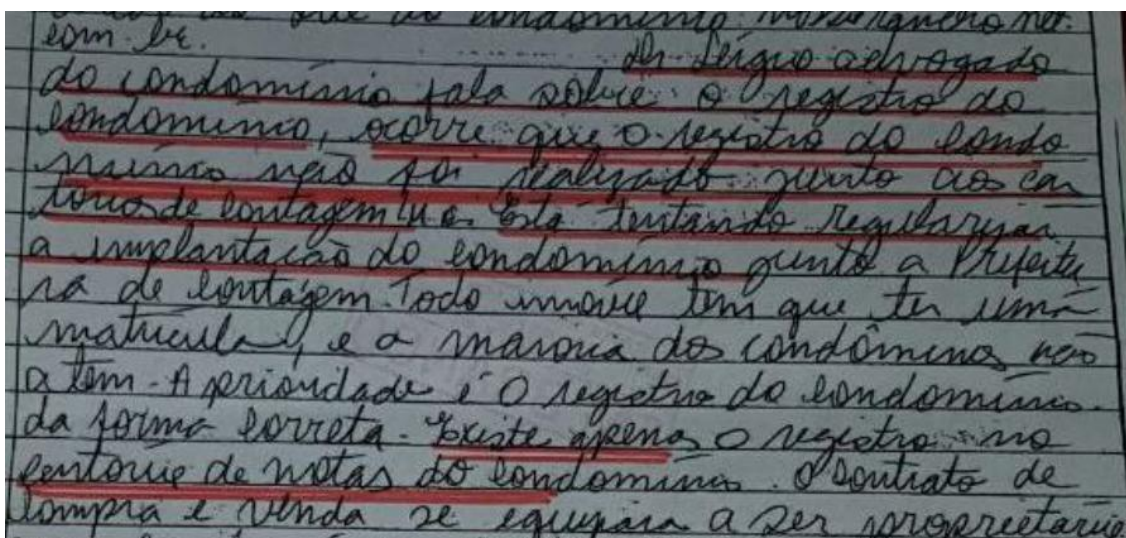 que do condominio
com.br. Dr Sérgio advogado
do condomínio fala sobre o registro do
condomínio, ocorre que o registro do condo
minio não foi realizado junto aos car
torios de contagem Está tentando regularizar
a implantação do condomínio junto a Prefeitu
ra de contagem. Todo imovel tem que ter uma
matricula, e a maioria dos condôminos não
a tem - A prioridade é o registro do condominio
da forma correta - Existe apenas o registro no
de notas do condominio. O contrato de
compra e venda se equipara a ser proprietario